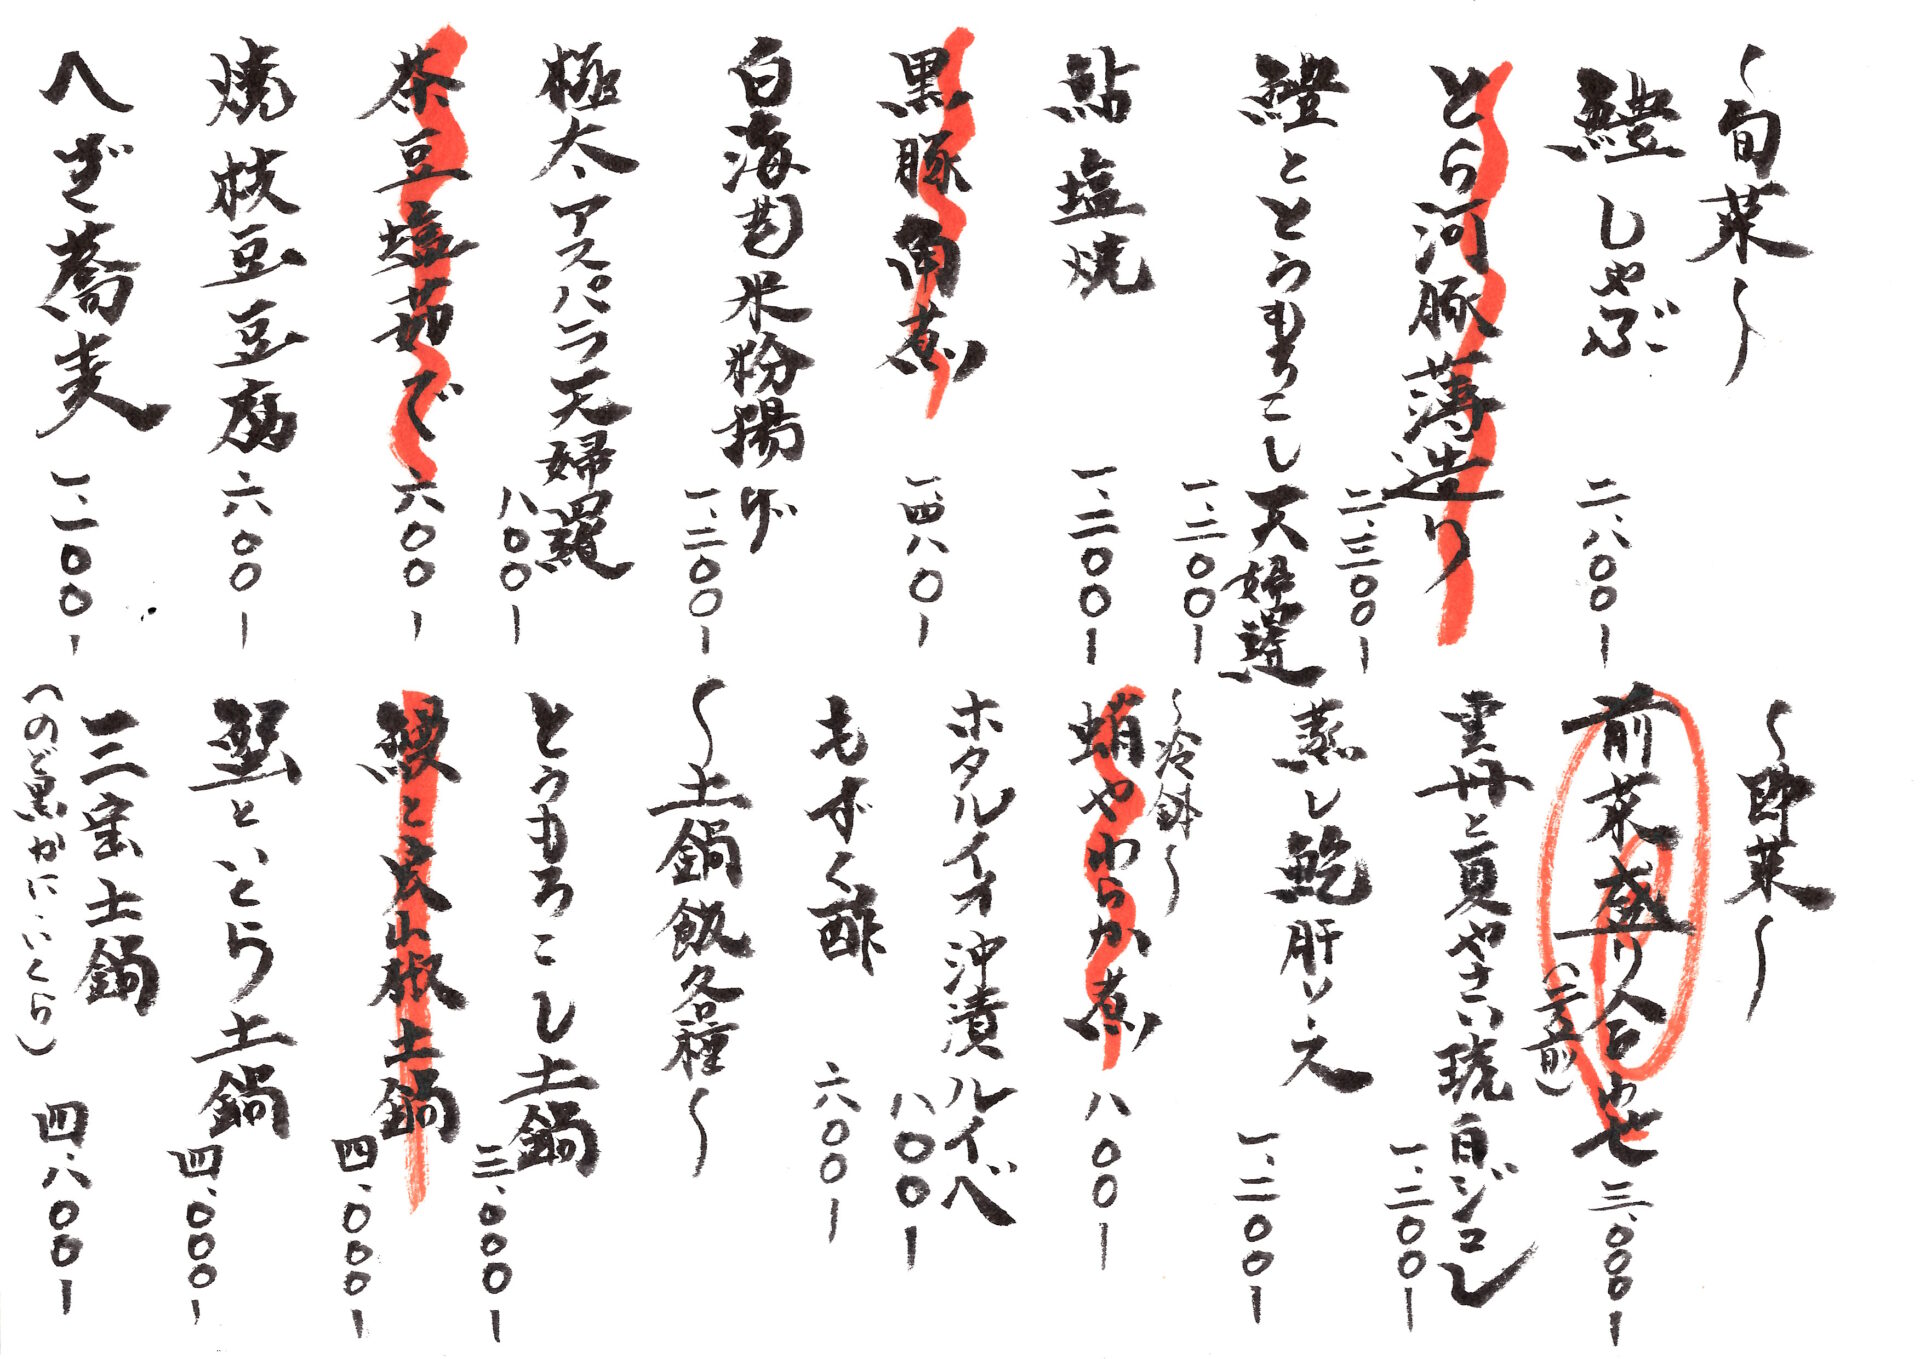 〜旬菜〜
鱧しゃぶ
二、八〇〇-
とら河豚薄造り
二、三〇〇-
鱧ととうもろこし天婦羅
一、二〇〇-
鮎塩焼
一、二〇〇-
黒豚角煮
一、四八〇-
白海老米粉揚げ
一、二〇〇-
極太アスパラ天婦羅
八〇〇-
茶豆塩茹で
六〇〇-
焼枝豆豆腐
六〇〇-
へぎ蕎麦
一、一〇〇-
〜即菜〜
前菜盛り合わせ
(二人前)
三、〇〇〇-
雲丹と夏やさい琥珀ジュレ
一、二〇〇-
蒸し鮑肝ソース
一、二〇〇-
〜冷鉢〜
蛸やわらか煮
八〇〇-
ホタルイカ沖漬ルイベ
八〇〇-
もずく酢
六〇〇-
〜土鍋飯各種〜
とうもろこし土鍋
三、〇〇〇-
鰻と実山椒土鍋
四、〇〇〇-
蟹といくら土鍋
四、〇〇〇-
三宝土鍋
(のど黒かにいくら)
四、八〇〇-